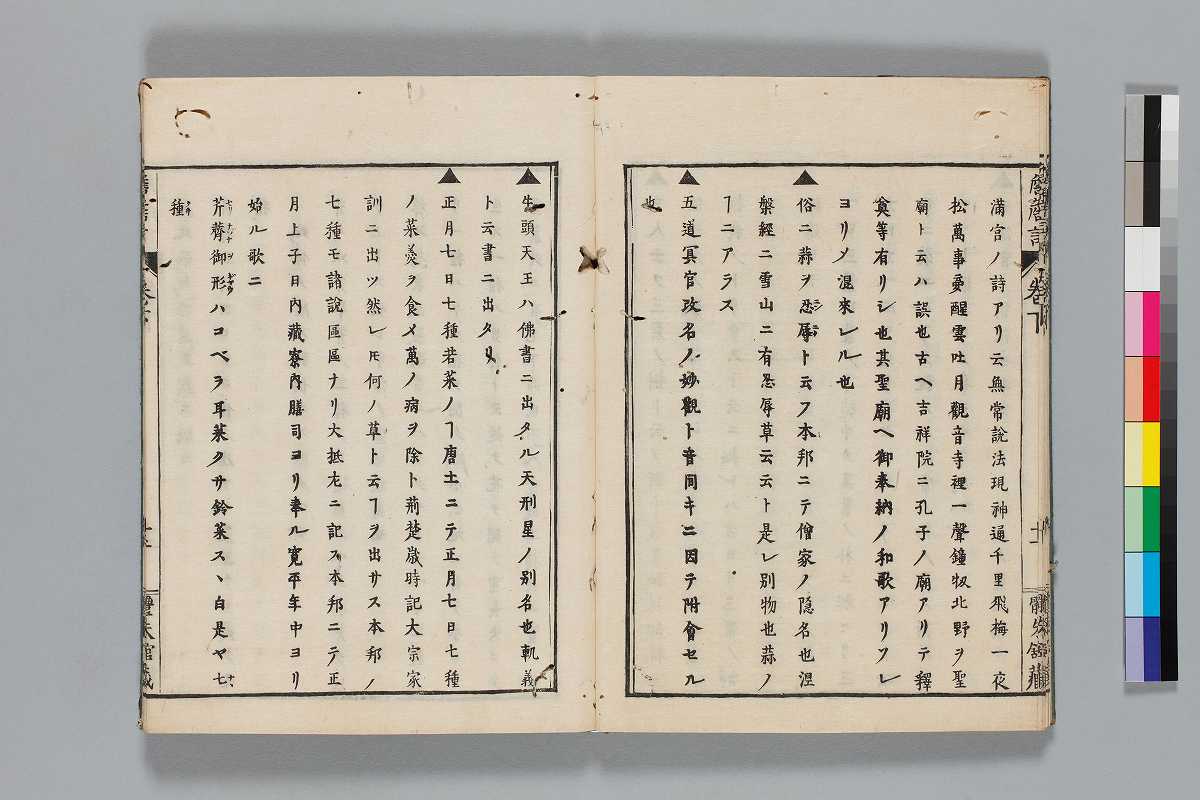 滿宮ノ詩アリ云無常說法現神通千里飛梅一夜
松萬事夢醒雲吐月觀音寺裡一聲鐘扨北野ヲ聖
廟ト云ハ誤也古ヘ吉祥院ニ孔子ノ廟アリテ釋
奠等有リシ也其聖廟ヘ御奉納ノ和歌アリソレ
ヨリメ混來レル也
▲俗ニ蒜ヲ忍辱ト云フ本邦ニテ僧家ノ隱名也涅
槃經ニ雪山ニ有忍辱草云云ト是レ別物也蒜ノ
ヿニアラス
▲五道冥官改名ノ妙觀ト音同キニ因テ附會セル
也
▲牛頭天王ハ佛書ニ出タル天刑星ノ別名也軌義
ト云書ニ出タリ
▲正月七日七種若菜ノヿ唐土ニテ正月七日七種
ノ菜羮ヲ食メ萬ノ病ヲ除ト荊楚歲時記大宗家
訓ニ出ツ然レ𪜈何ノ草ト云ヿヲ出サス本邦ノ
七種モ諸說區區ナリ大抵左ニ記ス本邦ニテ正
月上子日內藏寮內膳司ヨリ奉ル寬平年中ヨリ
始ル歌ニ
芹薺御形ハコベラ耳菜クサ鈴菜スヽ白是ヤ七
種